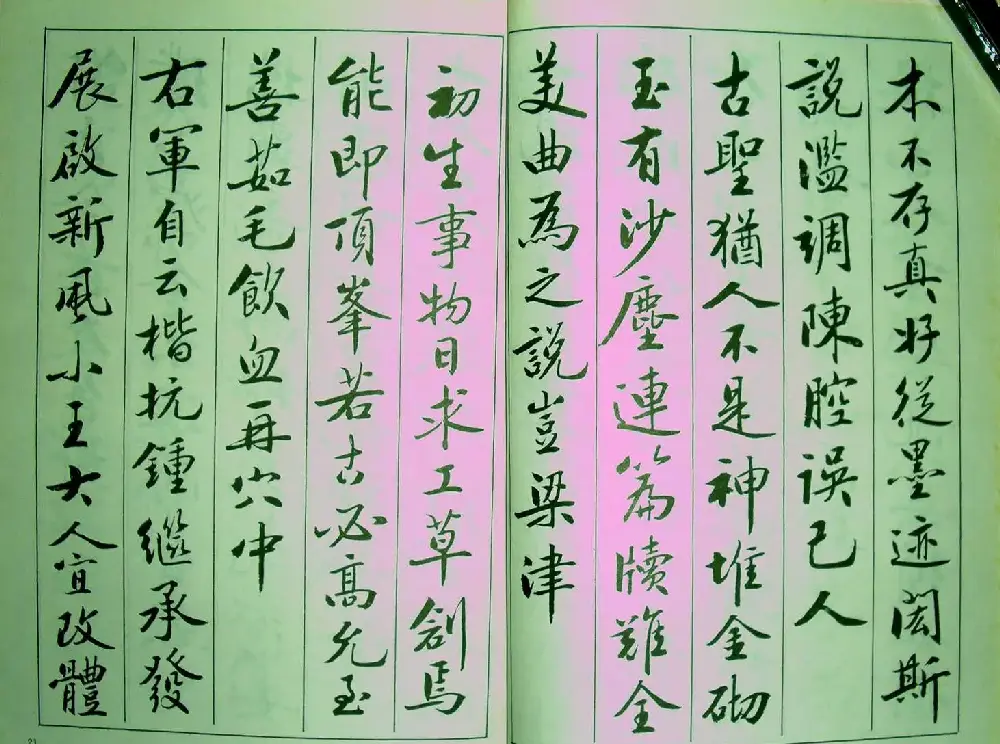 木不存真好從墨迹閎斯
說濫調陳腔誤己人
古聖猶人不是神堆金砌
玉有沙塵連篇牘難全
美曲為之說豈梁津
初生事物日求工草創焉
能即頂峯若古必高允至
善茹毛飲血再穴中
右軍自云楷抗鍾繼承發
展啟新風小王大人宜改體
21